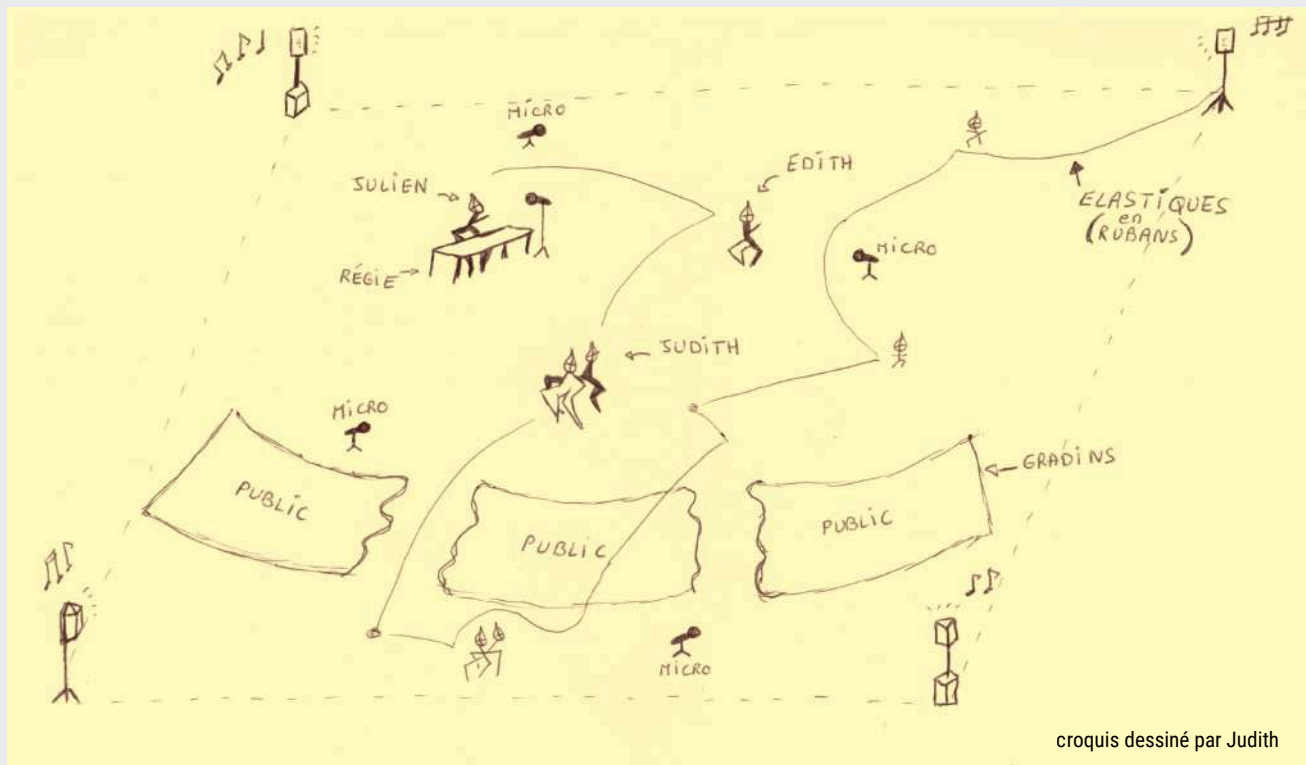 MICRO
JULIEN
EDITH
ELASTIQUES
en
(RUBANS)
MICRO
RÉGIE
JUDITH
MICRO
GRADINS
PUBLIC
PUBLIC
PUBLIC
MICRO
croquis dessiné par Judith